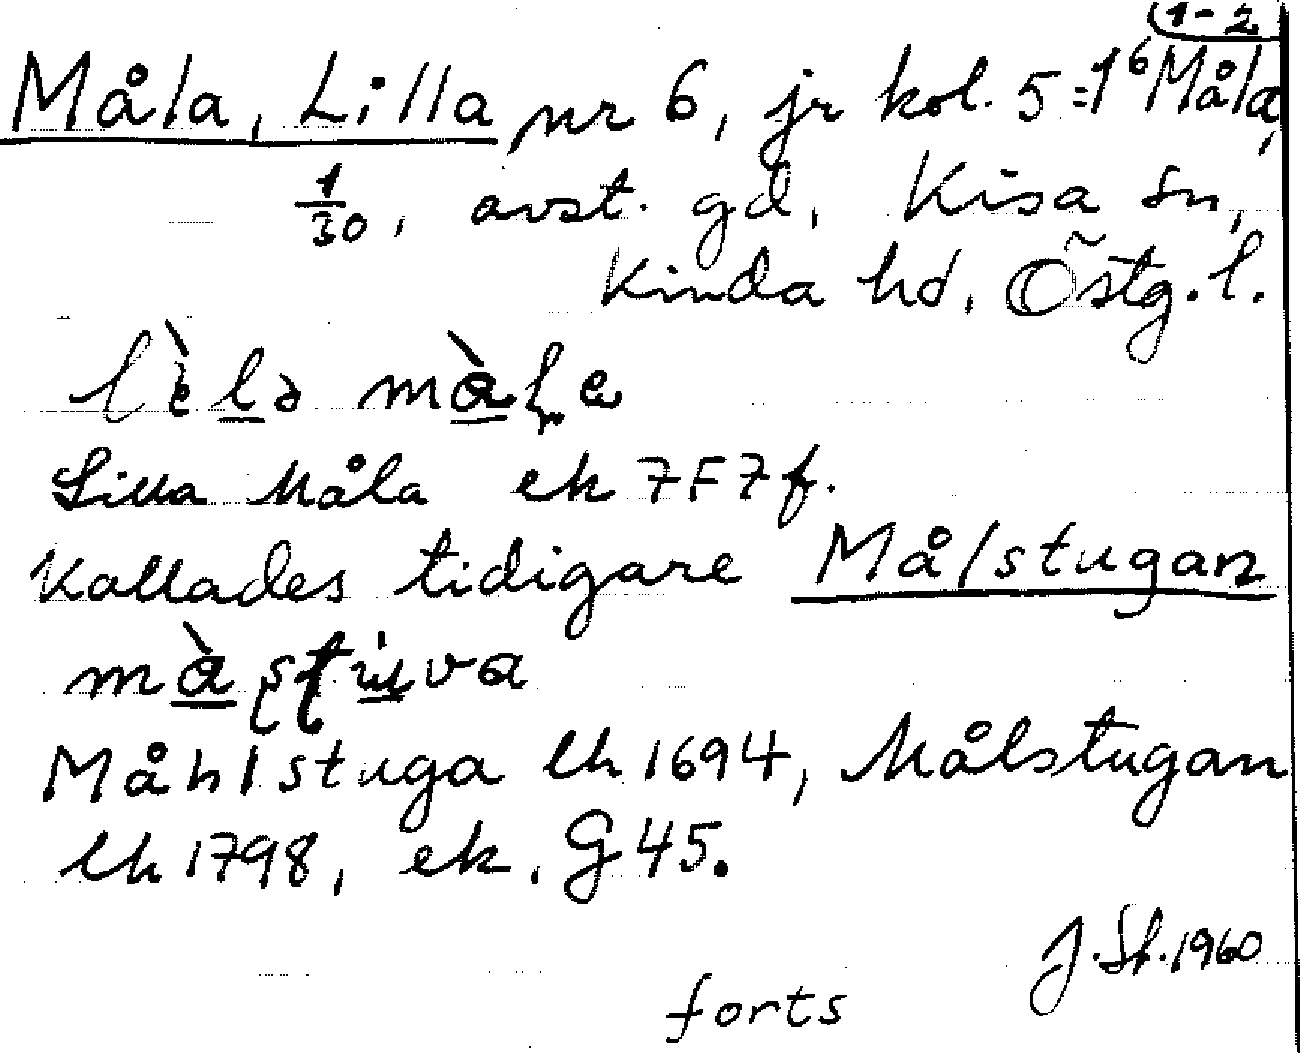 (1-2
Måla, Lilla nr 6, jr kol. 5=1⁶ Måla,
1/30, avst. gd, Kisa sn,
Kinda hd. Östg.l.
lèlə màla
Lilla Måla ek 7F7f.
Kallades tidigare Målstugan
màstuva
Måhlstuga lh 1694, Målstugan
lh 1798, ek. G45.
J.St. 1960
forts